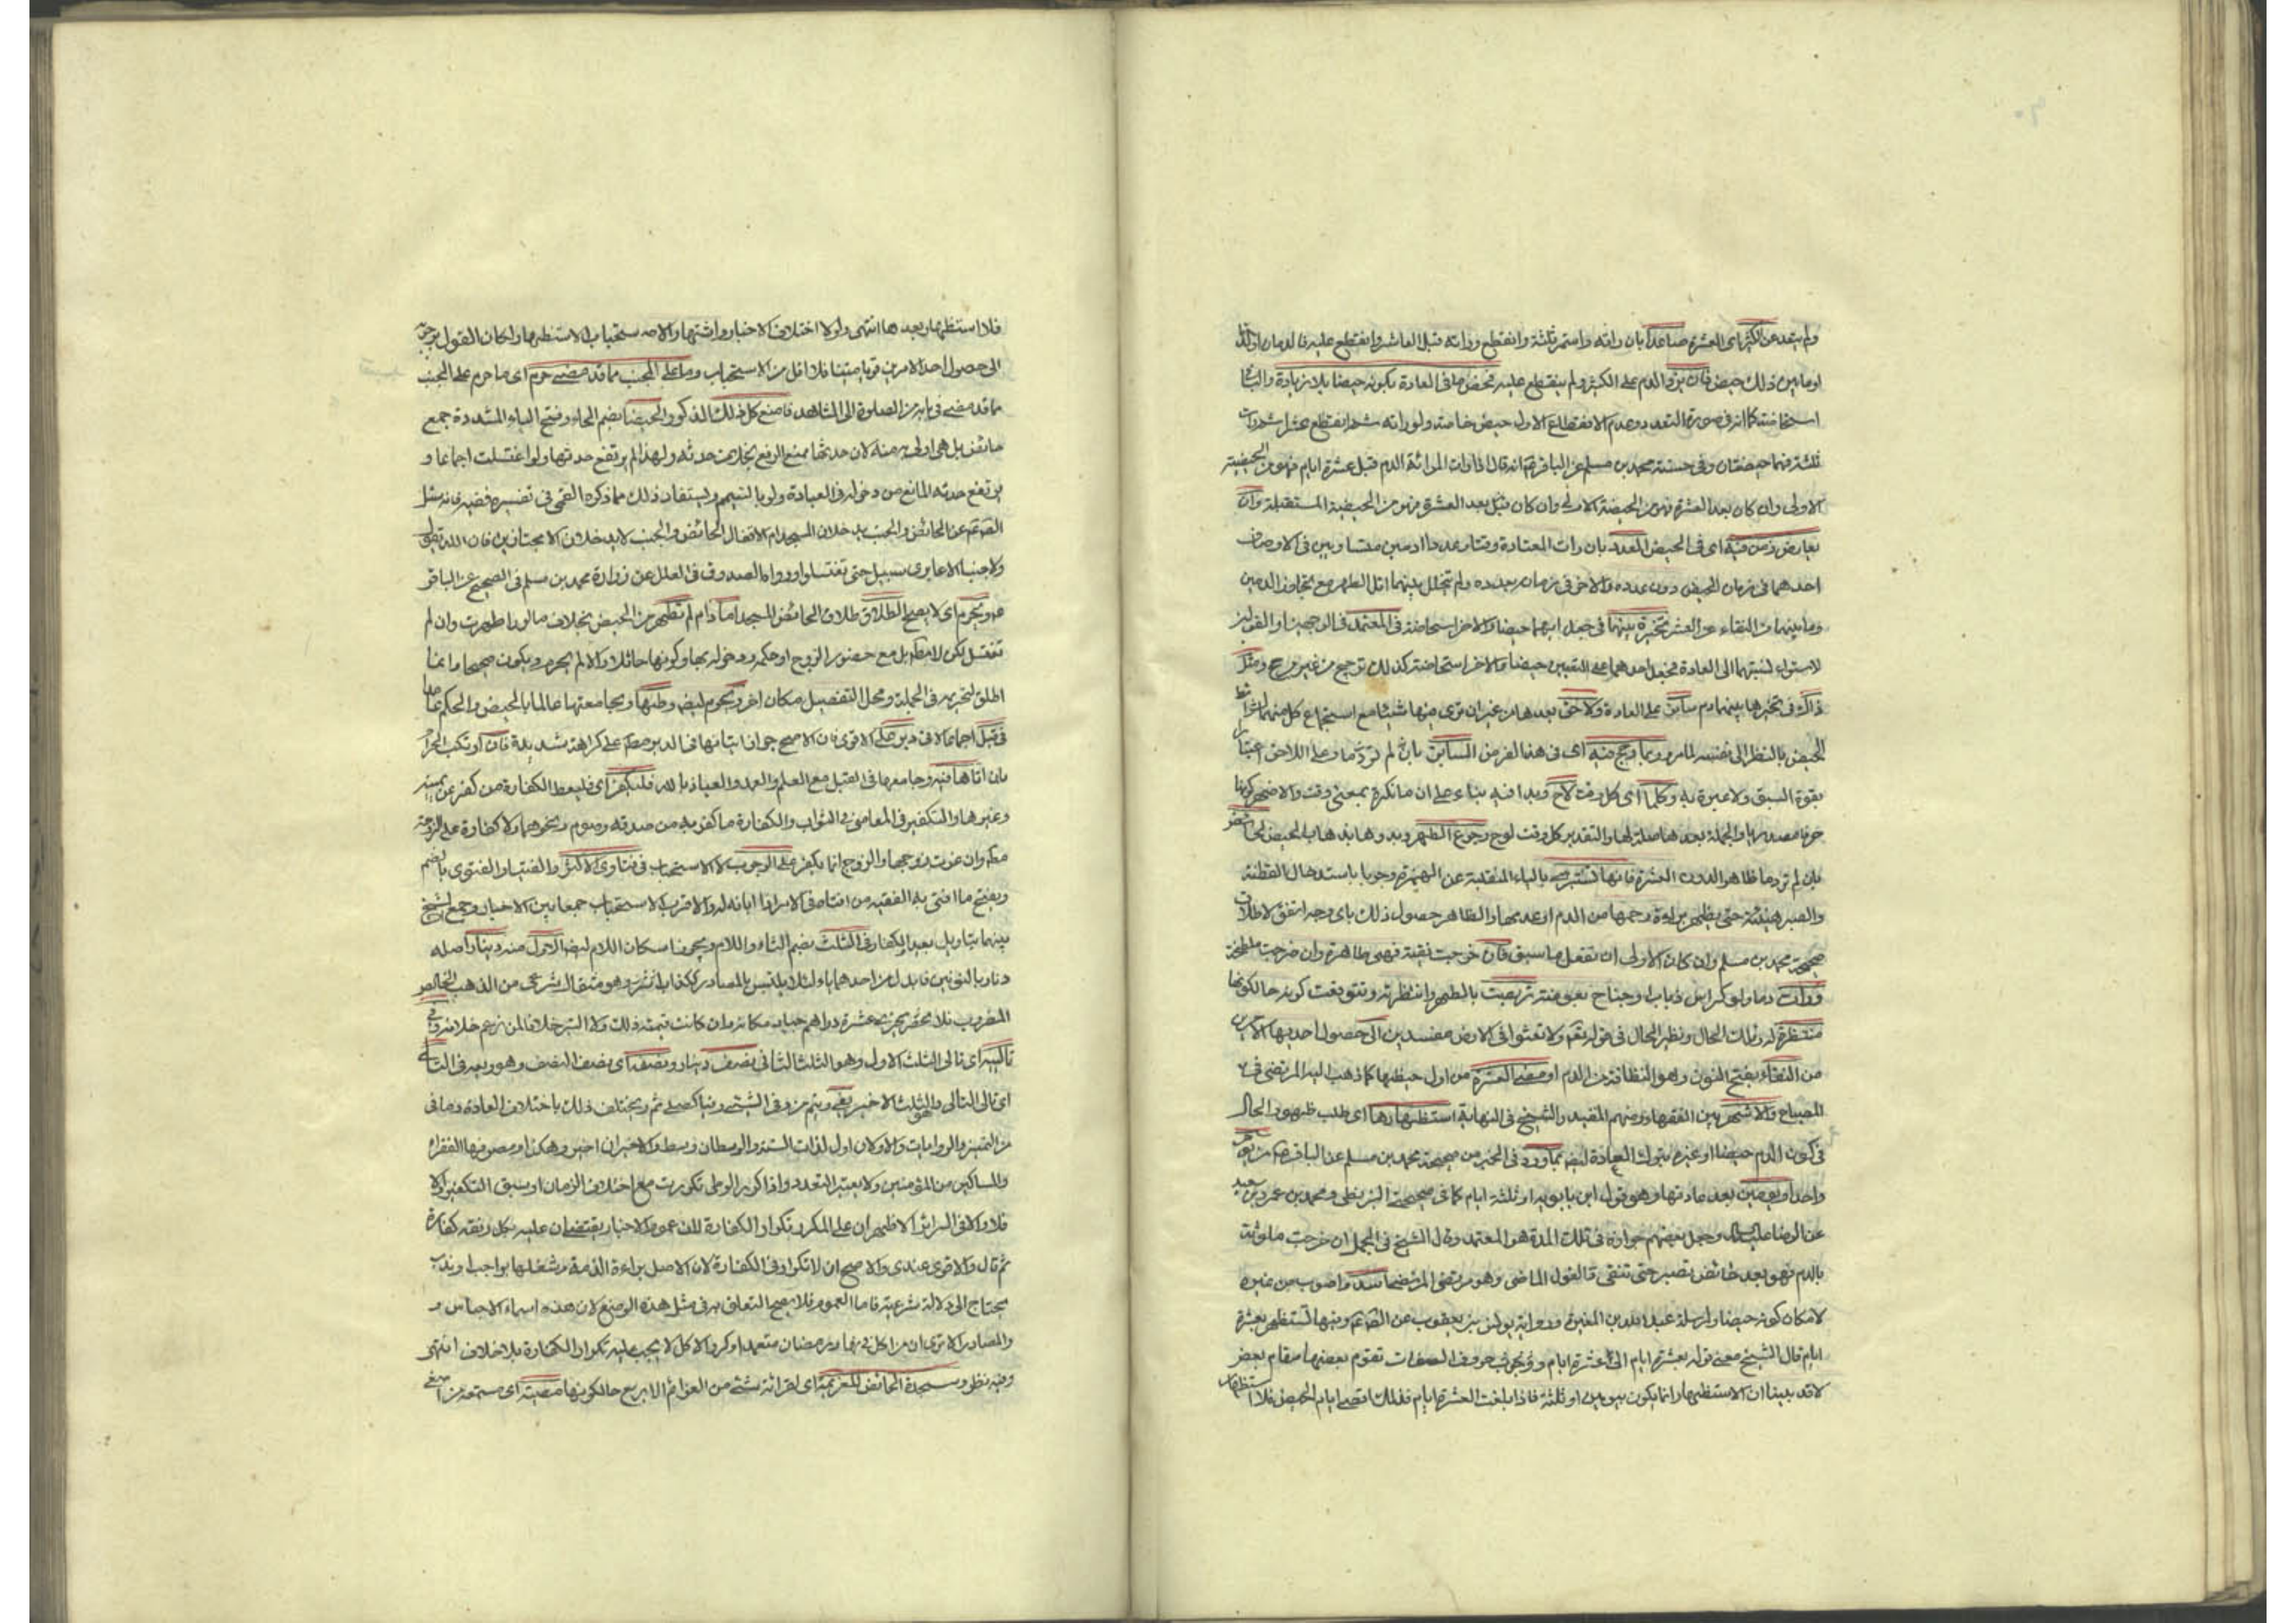 ولم يتعد عن الكثير اى العشرة صاعدا بان رأته واستمر ثلثة وانقطع ورأته قبل العاشر وانقطع عليه فالدمان
اوما بين ذلك حيض فان برز الدم على الكثير ولم ينقطع عليه فحض ما فى العادة بكونه حيضا بلا زيادة والباقى
استحاضة كما انه فى صورة التعدد وعدم الانقطاع الاول حيض خاصة ولو رأته ثلثة ثم انقطع عشرا ثم رأت
ثلثة فهما حيضتان وفى حسنة محمد بن مسلم عن الباقر انه قال اذا رات المرأة الدم قبل عشرة ايام فهو من الحيضة
الاولى وان كان بعد العشرة فهو من الحيضة المستقبلة وان
يعارض زمن فيه اى فى الحيض العدد بان رات المعتادة وقتا وعددا دمين متساويين فى الاوصاف
احدهما فى زمان الحيض دون عدده والاخر فى زمان بعدده ولم يتخلل بينهما اقل الطهر مع تجاوز الدمين
وما بينهما من النقاء عن العشر تخيرة بينهما فى جعل ايهما حيضا والاخر استحاضة فى المعتمد
لاستواء نسبتهما الى العادة فجعل احدهما على التعيين حيضا والاخر استحاضة كذلك ترجيح من غير مرجح ومثل
ذاك فى تخيرها بينهما دم سابق على العادة ولاحق بعدها من غير ان ترى فيها شيئا مع استجماع كل منهما
الحيض بالنظر الى نفسه لامر وربما رجح فيه اى فى هذا الفرض السابق بان لم تر دما وعلى اللاحق
بقوة السبق ولا عبرة به وكلما اى كل وقت لاح وبدا فيه بناء على ان ما نكرة بمعنى وقت
حرفا مصدريا والجملة بعدها صلة لها والتقدير كل وقت لوح رجوع الطهر
بان لم تر دما ظاهرا لدون العشرة فانها تستبرى بالياء المنقلبة عن الهمزة وجوبا باستدخال القطنة
والصبر هنيئة حتى يظهر براءة رحمها من الدم او عدمها والظاهر حصول ذلك باى وجه اتفق لاطلاق
صحيحة محمد بن مسلم وان كان الاولى ان تفعل ما سبق فان خرجت نقية فهى طاهرة وان خرجت ملطخة
ورأت دما ولو كراس ذباب او جناح بعوضة تربصت بالطهر وانتظرته وتتوقعت كونه حالكونها
منتظرة لدرك الحال ونظير الحال فى قوله تعالى ولا تعثوا فى الارض مفسدين الى حصول احديهما
من النقاء بفتح النون وهو النظافة من الدم او مضى العشرة من اول حيضها كما ذهب اليه المرتضى فى
المصباح والاشهر بين الفقهاء ومنهم المفيد والشيخ فى النهاية استظهارها اى طلب ظهور الحال
فى كون الدم حيضا او غيره بترك العبادة بما ورد فى الخبر من صحيحة محمد بن مسلم عن الباقر
واحدا ويومين بعد عادتها وهو قول ابن بابويه او ثلثة ايام كما فى صحيحة البزنطى ومحمد بن عمرو بن سعيد
عن الرضا عليه السلام وجعل بعضهم جوازه فى تلك المدة هو المعتمد وقال الشيخ فى الجمل ان خرجت ملوثة
بالدم فهو بعد حائض تصبر حتى تنقى فالقول الماضى وهو مرتضى المرتضى اسد واصوب من غيره
لامكان كونه حيضا ولمرسلة عبد الله بن المغيرة ورواية يونس بن يعقوب عن الصادق وفيها تستظهر بعشرة
ايام قال الشيخ معنى قوله بعشرة ايام الى عشرة ايام وحروف الصفات تقوم بعضها مقام بعض
لا قد بينا ان الاستظهار انما يكون بيومين او ثلثة فاذا بلغت العشرة ايام فذلك اقصى ايام الحيض فلا استظهار
فلا استظهار بعدها انتهى ولولا اختلاف الاخبار واشتهار والاصح استحباب الاستظهار ولكان القول
الى حصول احد الامرين قويا متينا فلا اقل من الاستحباب وما على الجنب مما قد مضى حرم اى ما حرم على الجنب
مما قد مضى فى بابه من الصلوة الى المشاهد فامنع كل ذلك المذكور والحيض بضم الحاء وفتح الياء المشددة جمع
حائض بل هى اولى به منه لان حدثها يمنع الرفع بخلاف حدثه ولهذا لم يرتفع حدثها ولو اغتسلت اجماعا و
يرتفع حدثه المانع من دخوله فى العبادة ولو بالتيمم ويستفاد ذلك مما ذكره القمى فى تفسيره
الصادق عن الحائض والجنب يدخلان المسجد ام لا فقال الحائض والجنب لا يدخلان الا مجتازين فان الله تعالى
ولا جنبا الا عابرى سبيل حتى تغتسلوا ورواه الصدوق فى العلل عن زرارة ومحمد بن مسلم فى الصحيح عن الباقر
ويحرم اى لا يصح الطلاق طلاق الحائض المسجد ما دام لم تطهر من الحيض بخلاف ما لو طهرت وان لم
تغتسل لكن لا مطلقا بل مع حضور الزوج او حكمه ودخوله بها وكونها حائلا والا لم يحرم ويكون صحيحا وانما
اطلق تحريمه فى الجملة ومحل التفصيل مكان اخر ويحرم ايضا وطئها ومجامعتها عالما بالحيض والحكم عامدا
فى قبل اجماعا لا فى دبر على الاقوى فان الاصح جواز اتيانها فى الدبر مطلقا على كراهة شديدة فان ارتكب الحرام
بان اتاها فيه وجامعها فى القبل مع العلم والعمد والعياذ بالله فليكفر اى فليعط الكفارة من كفر عن يمينه
وغيرها والتكفير فى المعاصى فى الثواب والكفارة ما كفر به من صدقة وصوم ونحوهما ولا كفارة على الزوجة
مطلقا وان غرت زوجها والزوج انما يكفر على الوجوب لا الاستحباب فى فتاوى الاكثر والفتيا والفتوى بالضم
وبفتح ما افتى به الفقيه من افتاه فى الامر اذا ابانه له والاقرب الاستحباب جمعا بين الاخبار وجمع الشيخ
بينهما بتاويل بعيد الكفار فى الثلث بضم الثاء واللام ويجوز اسكان اللام ايضا الاول منه دينار واصله
دنار بالنونين فابدل من احدهما ياء لئلا يلتبس بالمصادر ككذاب وهو مثقال شرعى من الذهب الخالص
المضروب فلا يجزى عشرة دراهم جياد مكانه وان كانت قيمته ذلك ولا التبر خلافا لمن زعم خلافه وفى
تاليه اى تالى الثلث الاول وهو الثلث الثانى نصف دينار ونصفه اى نصف النصف وهو ربعه فى التالى
اى تالى التالى وهو الثلث الاخير ويختلف ذلك باختلاف العادة وما فى
من التمييز والروايات والاولان اول لذات الستة والوسطان وسط والاخيران اخير وهكذا ومصرفها الفقراء
والمساكين من المؤمنين ولا يعتبر التعدد واذا كرر الوطى تكررت مع اختلاف الزمان او سبق التكفير والا
فلا وفى السرائر الاظهر ان على المكرر تكرار الكفارة لان عموم الاخبار يقتضى ان عليه بكل دفعة كفارة
ثم قال والاقوى عندى والاصح ان لا تكرار فى الكفارة لان الاصل براءة الذمة وشغلها بواجب او ندب
يحتاج الى دلالة شرعية فاما العموم فلا يصح التعلق به فى مثل هذه المواضع لان هذه اسماء الاجناس و
والمصادر الا ترى ان من اكل فى نهار رمضان متعمدا وكرر الاكل لا يجب عليه تكرار الكفارة بلا خلاف انتهى
وفيه نظر وسجدة الحائض للعزيمة اى لقرائة شئ من العزائم الاربع حالكونها مصيتة اى مستمعة من اصغى